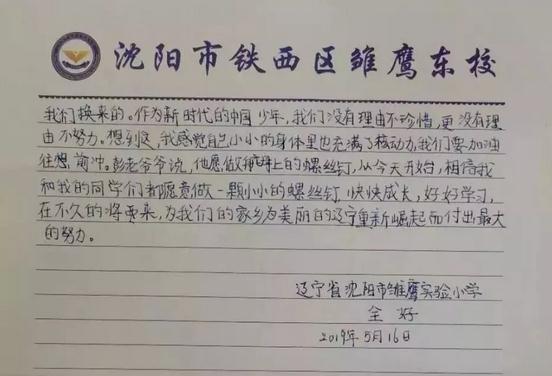 沈阳市铁西区雏鹰东校
我们换来的。作为新时代的中国少年，我们没有理由不珍惜，更没有理
由不努力。想到这，我感觉自己小小的身体里也充满了核动力，我们要加油
往想前冲。彭老爷爷说，他愿做 上的螺丝钉，从今天开始，相信我
和我的同学们都愿意做一颗小小的螺丝钉，快快成长，好好学习，
在不久的将来，为我们的家乡为美丽的辽宁重新崛起而付出最大
的努力。
辽宁省沈阳市雏鹰实验小学
全好
2019年5月16日